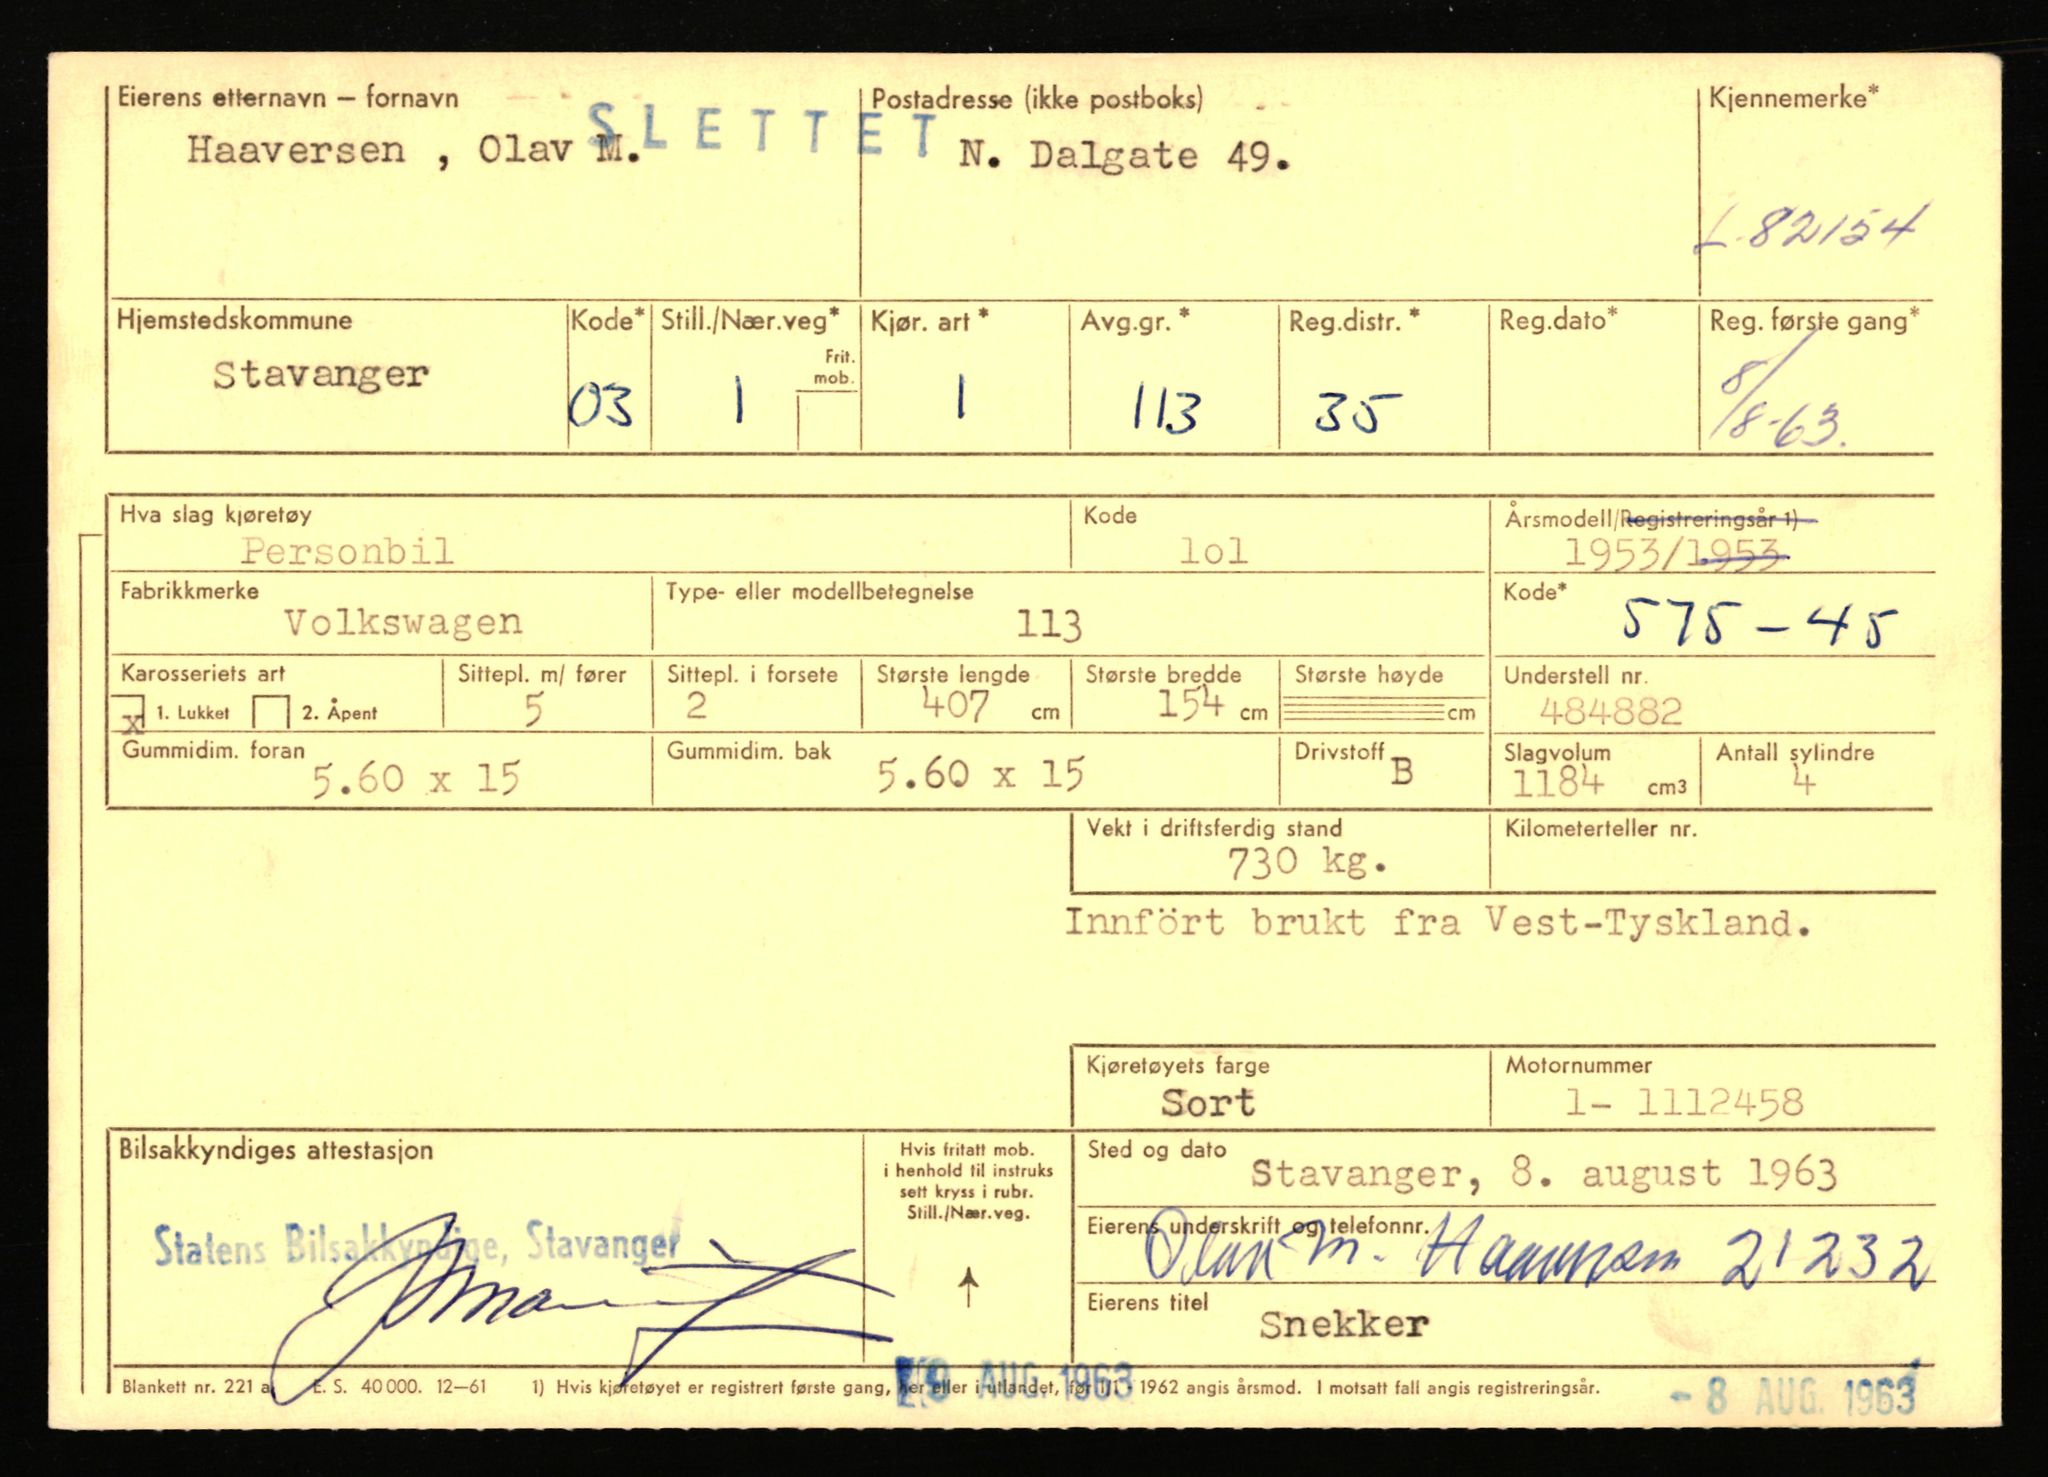 Eierens etternavn – fornavn
Postadresse (ikke postboks)
Kjennemerke*
SLETTET
Haaversen , Olav M.
N. Dalgate 49.
L-82154
Hjemstedskommune
Kode*
Still./Nær.veg*
Kjør. art *
Avg.gr. *
Reg.distr. *
Reg.dato*
Reg. første gang*
Frit.
mob.
Stavanger
03
1
1
113
35
8/8-63.
Hva slag kjøretøy
Kode
Årsmodell/Registreringsår 1)
Personbil
lol
1953/1953
Fabrikkmerke
Type- eller modellbetegnelse
Kode*
Volkswagen
113
575-45
Karosseriets art
Sittepl. m/ fører
Sittepl. i forsete
Største lengde
Største bredde
Største høyde
Understell nr.
x 1. Lukket
2. Åpent
5
2
407 cm
154 cm
cm
484882
Gummidim. foran
Gummidim. bak
Drivstoff
Slagvolum
Antall sylindre
5.60 x 15
5.60 x 15
B
1184 cm3
4
Vekt i driftsferdig stand
Kilometerteller nr.
730 kg.
Innfört brukt fra Vest-Tyskland.
Kjøretøyets farge
Motornummer
Sort
1- 1112458
Bilsakkyndiges attestasjon
Hvis fritatt mob.
i henhold til instruks
sett kryss i rubr.
Still./Nær.veg.
Sted og dato
Stavanger, 8. august 1963
Statens Bilsakkyndige, Stavanger
Eierens underskrift og telefonnr.
Olav M. Haaversen 21232
Eierens titel
Snekker
Blankett nr. 221 a. E. S. 40 000. 12–61 1) Hvis kjøretøyet er registrert første gang, her eller i utlandet, før 1/1 - 1962 angis årsmod. I motsatt fall angis registreringsår.
9 AUG. 1963
- 8 AUG. 1963